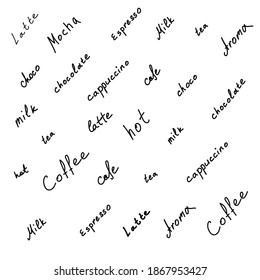 Latte Mocha Espresso Milk tea Aroma
choco chocolate cappuccino cafe choco chocolate
milk tea latte hot milk cappuccino
hot Coffee cafe tea
Milk Espresso Latte Aroma Coffee
shutterstock.com · 1867953427